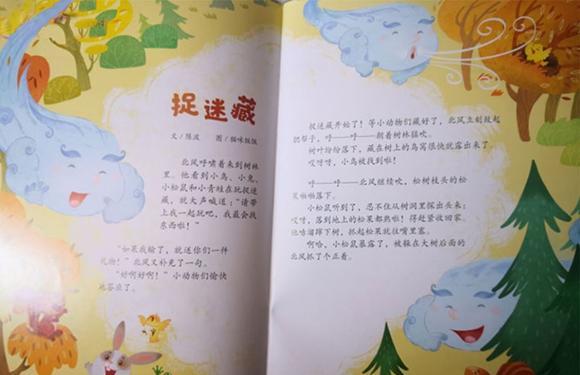 捉迷藏
文/陈波 图/猫咪饭饭
北风呼啸着来到树林
里。他看到小鸟、小兔、
小松鼠和小青蛙在玩捉迷
藏，就大声喊道：“请带
上我一起玩吧，我最会找
东西啦！”
“如果我输了，就送你们一件
礼物！”北风又补充了一句。
“好啊好啊！”小动物们愉快
地答应了。
捉迷藏开始了！等小动物们藏好了，北风立刻鼓起
腮帮子，呼——呼——朝着树林猛吹。
树叶纷纷落下，藏在树上的鸟窝很快就露出来了。
哎呀呀，小鸟被找到啦！
呼——呼——北风继续吹，松树枝头的松
果啪啪落下。
小松鼠听到了，忍不住从树洞里探出头来：
哎呀，落到地上的松果都熟啦！得赶紧收回家。
他哧溜蹿下树，抓起松果就往嘴里塞。
啊哈，小松鼠暴露了，被躲在大树后面的
北风抓了个正着。